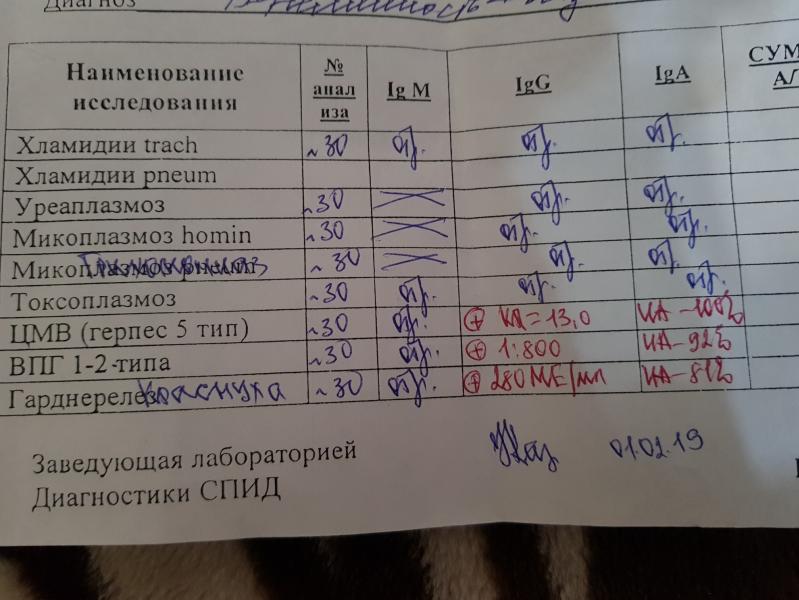 Диагноз
Наименование исследования № анализа Ig M IgG IgA СУМ А/Т
Хламидии trach ~30 отр. отр. отр.
Хламидии pneum
Уреаплазмоз ~30 отр. отр.
Микоплазмоз homin ~30 отр. отр.
Микоплазмоз ~30 отр. отр.
Токсоплазмоз ~30 отр. отр. отр.
ЦМВ (герпес 5 тип) ~30 отр. ⊕ = 13,0 ИА-100%
ВПГ 1-2-типа ~30 отр. ⊕ 1:800 ИА-92%
Гарднерелез краснуха ~30 отр. ⊕ 280 МЕ/мл ИА-81%
Заведующая лабораторией 01.02.19
Диагностики СПИД